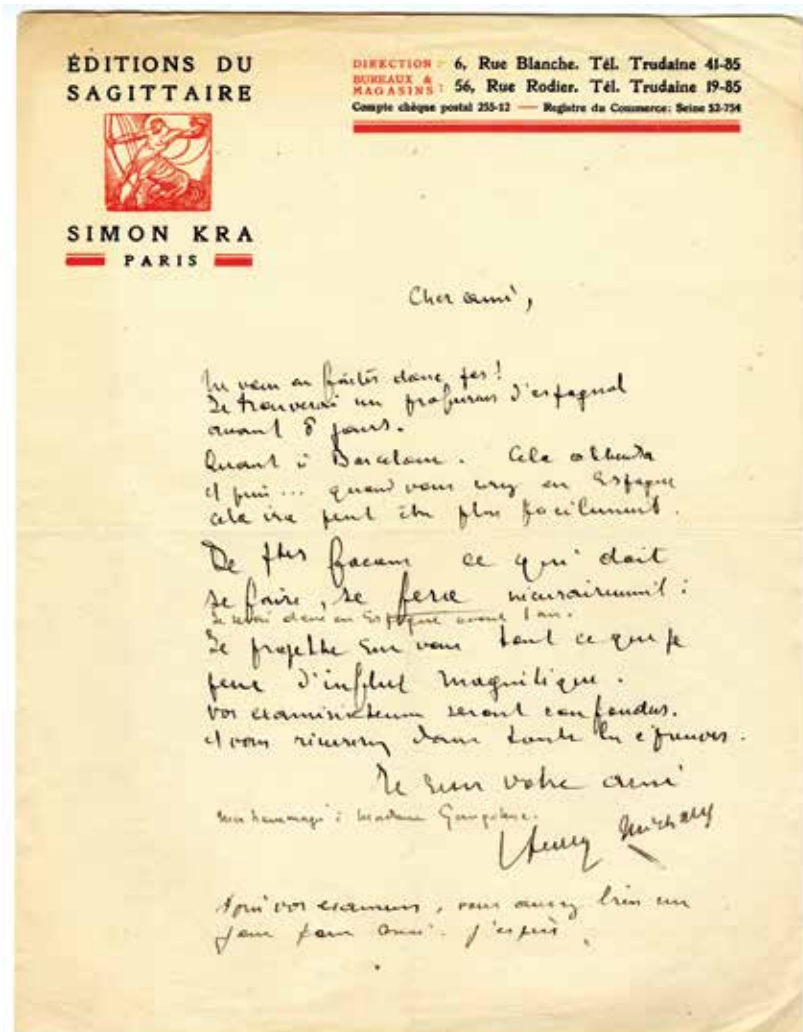 ÉDITIONS DU
SAGITTAIRE
SIMON KRA
PARIS
DIRECTION : 6, Rue Blanche. Tél. Trudaine 41-85
BUREAUX &
MAGASINS : 56, Rue Rodier. Tél. Trudaine 19-85
Compte chèque postal 255-12 — Registre du Commerce: Seine 52-754
Cher ami,
Ne vous en faites donc pas !
Je trouverai un professeur d'espagnol
avant 8 jours.
Quant à Barcelone. Cela attendra
et puis... quand vous serez en Espagne
cela ira peut être plus facilement.
De ttes façons ce qui doit
se faire, se fera nécessairement :
Je serai donc en Espagne avant 1 an.
Je projette sur vous tout ce que je
peux d'influx magnétique.
Vos examinateurs seront confondus.
et vous réussirez dans toutes les épreuves.
Je suis votre ami
mes hommages à Madame
Henry Michaux
Après vos examens, vous aurez bien un
jour pour moi. j'espère.